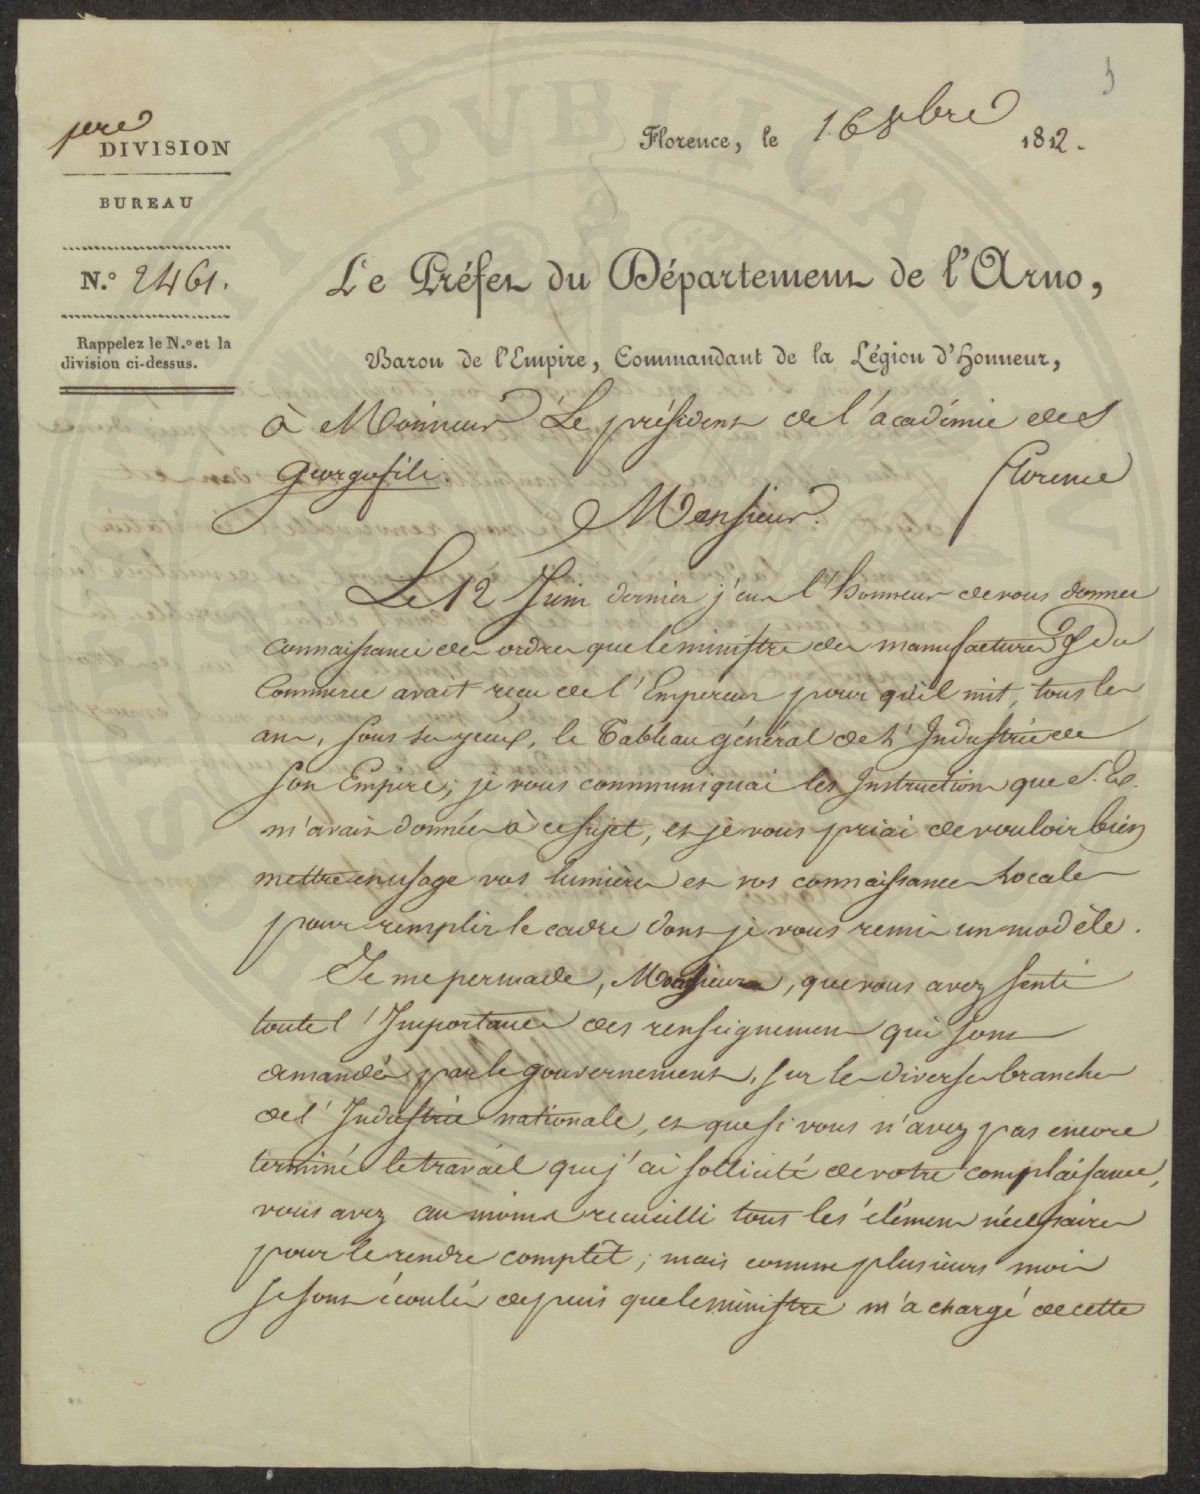 1ere
DIVISION
BUREAU
N.º 2461.
Rappelez le N.º et la
division ci-dessus.
Florence, le 16 8bre 1812.
Le Préfet du Département de l'Arno,
Baron de l'Empire, Commandant de la Légion d'Honneur,
à Monsieur Le président de l'académie des
Georgofili. Florence
Monsieur.
Le 12 Juin dernier j'eus l'honneur de vous donner
connaissance des ordres que le ministre des manufactures & du
Commerce avait reçu de l'Empereur pour qu'il mit, tous les
ans, sous ses yeux, le Tableau général de l'Industrie de
son Empire; je vous communiquai les Instructions que S. Ex.
m'avait données à ce sujet, et je vous priai de vouloir bien
mettre en usage vos lumières et vos connaissances Locales
pour remplir le cadre dont je vous remis un modèle.
Je me persuade, Monsieur, que vous avez senti
toute l'Importance des renseignemens qui sont
demandés par le gouvernement, sur les diverses branches
de l'Industrie nationale, et que si vous n'avez pas encore
terminé le travail que j'ai sollicité de votre complaisance,
vous avez au moins recueilli tous les élémens nécessaires
pour le rendre complêt; mais comme plusieurs mois
se sont écoulés depuis que le ministre m'a chargé de cette